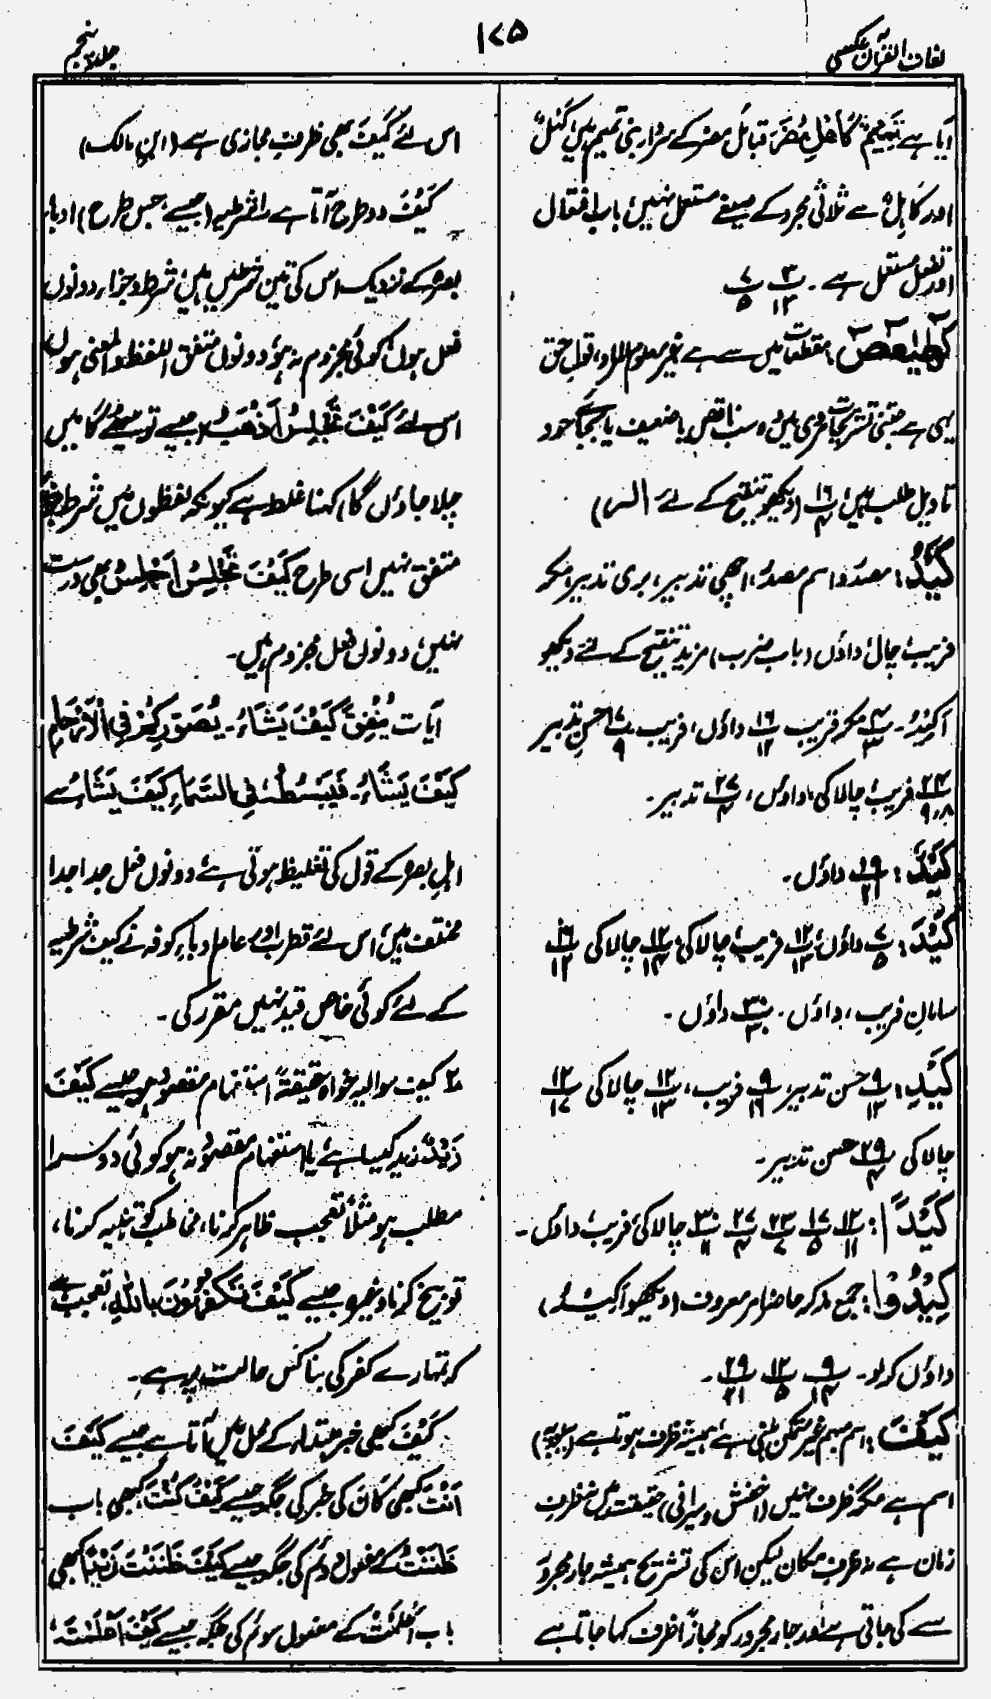 لغات القرآن عکسی
۱۷۵
جلد پنجم
آیا ہے تَمِیْمٌ کَاھِلُ مُضَرَ قبائل مضر کے سردار بنی تمیم ہیں
اور کَاہِلٌ سے ثلاثی مجرد کے صیغے مستعمل نہیں باب افتعال
اور تفعل مستعمل ہے۔ ۳/۱۲ ۷/۵
کٓھٰیٰعٓصٓ مقطعات میں سے ہے غیر معلوم المراد، قول حق
یہی ہے جتنی تشریحات کی گئی ہیں وہ سب ناقص یا ضعیف یا بجائے خود
تاویل طلب ہیں ۱۶/۴ (دیکھو تنقیح کے لئے الٓرٰ)
کَیْدُ: مصدر و اسم مصدر، اچھی تدبیر، بری تدبیر، مکر
فریب، چال، داؤں (باب ضرب) مزید تنقیح کے لئے دیکھو
اَکِیْدُ۔ ۴/۳ مکر فریب ۱۶/۱۲ داؤں، فریب ۱۷/۹ حسنِ تدبیر
۲۴/۹،۸ فریب، چالاکی، داؤں، ۲۷/۴ تدبیر۔
کَیْدَ: ۱۹/۲۱ داؤں۔
کَیْدَ: ۷/۵ داؤں، ۱۲/۱۳ فریب، چالاکی، ۱۲/۱۴ چالاکی ۱۶/۱۲
سامانِ فریب، داؤں۔ ۳۰/۳۰ داؤں۔
کَیْدِ: ۹/۱۲ حسن تدبیر، ۹/۱۶ فریب، ۱۲/۱۳ چالاکی ۱۲/۱۷
چالاکی ۲۹/۴ حسن تدبیر۔
کَیْدًا: ۱۲/۱۱ ۱۷/۵ ۲۳/۷ ۲۷/۴ ۳۰/۱۱ چالاکی، فریب، داؤں۔
کِیْدُوْا: جمع مذکر حاضر امر معروف (دیکھو اَکِیْدُ)
داؤں کر لو۔ ۹/۱۴ ۱۲/۵ ۲۹/۲۱۔
کَیْفَ: اسم مبہم غیر متمکن مبنی ہے ہمیشہ ظرف ہوتا ہے (سیبویہ)
اسم ہے مگر ظرف نہیں (اخفش و سیرافی) حقیقت میں نہ ظرفِ
زمان ہے نہ ظرفِ مکان لیکن اس کی تشریح ہمیشہ جار مجرور
سے کی جاتی ہے اور جار مجرور کو مجازاً ظرف کہا جاتا ہے
اس لئے کَیْفَ بھی ظرفِ مجازی ہے (ابن مالک)
کَیْفَ دو طرح آتا ہے ۱ شرطیہ (جیسے جس طرح) ادباء
بصرہ کے نزدیک اس کی تین شرطیں ہیں، شرط و جزاء دونوں
فعل ہوں، کوئی مجزوم نہ ہو، دونوں متفق اللفظ والمعنی ہوں
اس لئے کَیْفَ تَجْلِسُ اَذْھَبُ (جیسے تو بیٹھے گا میں
چلا جاؤں گا) کہنا غلط ہے کیونکہ لفظوں میں شرط و جزا
متفق نہیں اسی طرح کَیْفَ تَجْلِسْ اَجْلِسْ بھی درست
نہیں، دونوں فعل مجزوم ہیں۔
آیات یُنْفِقُ کَیْفَ یَشَاءُ۔ یُصَوِّرُکُمْ فِی الْاَرْحَامِ
کَیْفَ یَشَاءُ۔ فَیَبْسُطُہٗ فِی السَّمَاءِ کَیْفَ یَشَاءُ سے
اہلِ بصرہ کے قول کی تغلیط ہوتی ہے، دونوں فعل جدا جدا
مختلف ہیں، اس لئے قطرب اور عام ادباءِ کوفہ نے کیف شرطیہ
کے لئے کوئی خاص قید نہیں مقرر کی۔
۲ کیف سوالیہ خواہ حقیقۃً استفہام مقصود ہو جیسے کَیْفَ
زَیْدٌ زید کیسا ہے، یا استفہام مقصود نہ ہو کوئی دوسرا
مطلب ہو مثلاً تعجب ظاہر کرنا، مخاطب کو تنبیہ کرنا،
توبیخ کرنا وغیرہ جیسے کَیْفَ تَکْفُرُوْنَ بِاللّٰہِ تعجب ہے
کہ تمہارے کفر کی بنا کس حالت پر ہے۔
کَیْفَ کبھی خبر مبتداء کے محل میں آتا ہے جیسے کَیْفَ
اَنْتَ کبھی کَانَ کی خبر کی جگہ جیسے کَیْفَ کُنْتَ، کبھی باب
ظَنَنْتُ کے مفعول دوم کی جگہ جیسے کَیْفَ ظَنَنْتَ زَیْدًا کبھی
باب اَعْلَمْتُ کے مفعول سوم کی جگہ جیسے کَیْفَ اَعْلَمْتَ،